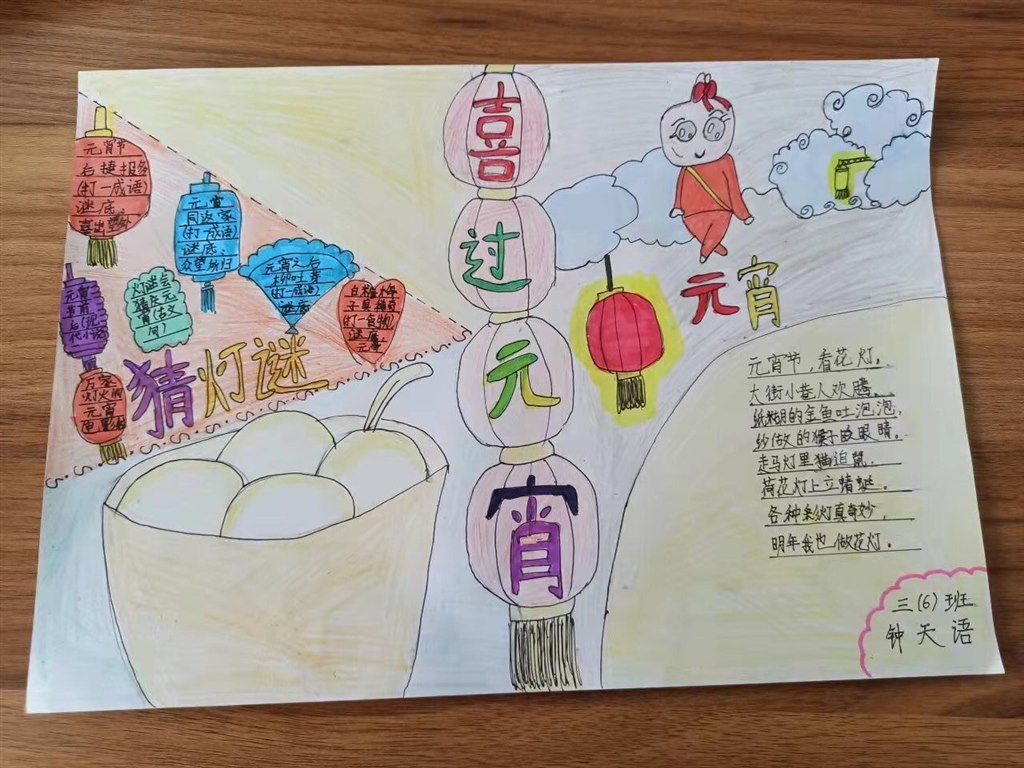 喜
过
元
宵
元宵节
后捷报多
(打一成语)
谜底
喜出望外
元宵
同返家
(打一成语)
谜底、
众望所归
元宵之后
柳吐芽
(打一成语)
谜底
灯谜会
万家
灯火闹
元宵
猜灯谜
元宵
元宵节,看花灯,
大街小巷人欢腾。
纸糊的金鱼吐泡泡,
纱做的猴子眨眼睛。
走马灯里猫追鼠,
荷花灯上立蜻蜓。
各种彩灯真奇妙,
明年我也做花灯。
三(6)班
钟天语